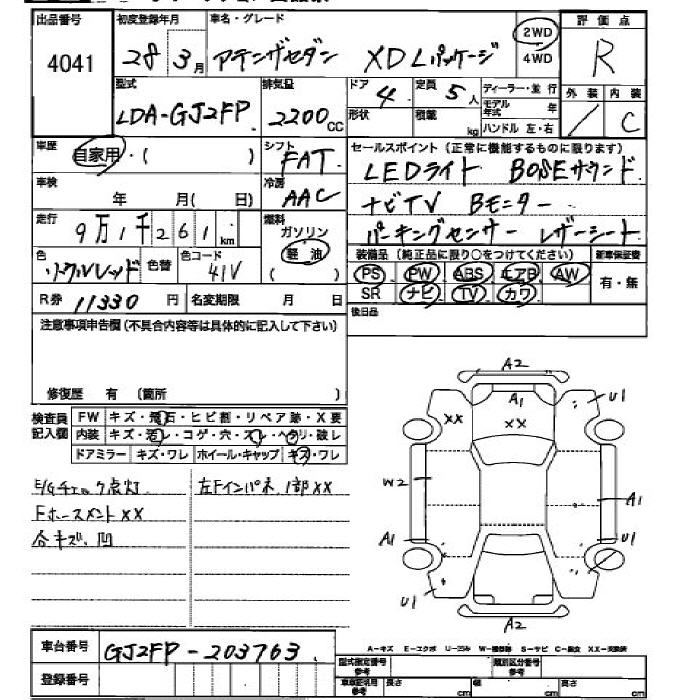 出品番号 初度登録年月 車名・グレード 評価点
4041 28 3月 アテンザセダン XD Lパッケージ 2WD 4WD R
型式 排気量 ドア 4 定員 5人 ディーラー・並行 外装 内装
LDA-GJ2FP 2200cc 形状 積載 kg モデル年式 年 ハンドル 左・右 / C
車歴 自家用・( ) シフト FAT セールスポイント(正常に機能するものに限ります)
LEDライト BOSEサウンド
車検 年 月( 日) 冷房 AAC
ナビTV Bモニター
走行 9万1千261km 燃料 ガソリン 軽油 ( )
パーキングセンサー レザーシート
色 ソウルレッド 色替 色コード 41V
装備品(純正品に限り○をつけてください) 新車保証書
PS PW ABS エアB AW 有・無
R券 11330円 名変期限 月 日
SR ナビ TV カワ
注意事項申告欄(不具合内容等は具体的に記入して下さい) 後日品
修復歴 有 (箇所 )
検査員記入欄 FW キズ・飛石・ヒビ割・リペア跡・X要
内装 キズ・汚レ・コゲ・穴・スレ・ヘタリ・破レ
ドアミラー キズ・ワレ ホイール・キャップ キズ・ワレ
E/Gチェック点灯 左Fインパネ 1部XX
FホースメントXX
各キズ、凹
A2
A1 U1
XX XX
W2 A1
A1 U1
U1
A2
車台番号 GJ2FP-203763
登録番号
A-キズ E-エクボ U-凹み W-補修跡 S-サビ C-腐食 XX-交換済
型式指定番号 参考 類別区分番号 参考
長さ cm 幅 cm 高さ cm